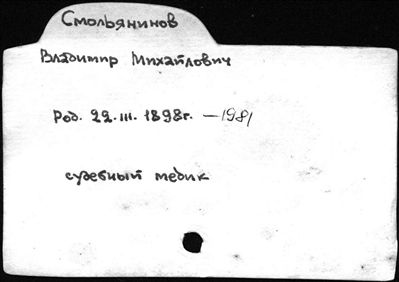 Смольянинов
Владимир Михайлович
Род. 22.III.1898г. — 1981
судебный медик